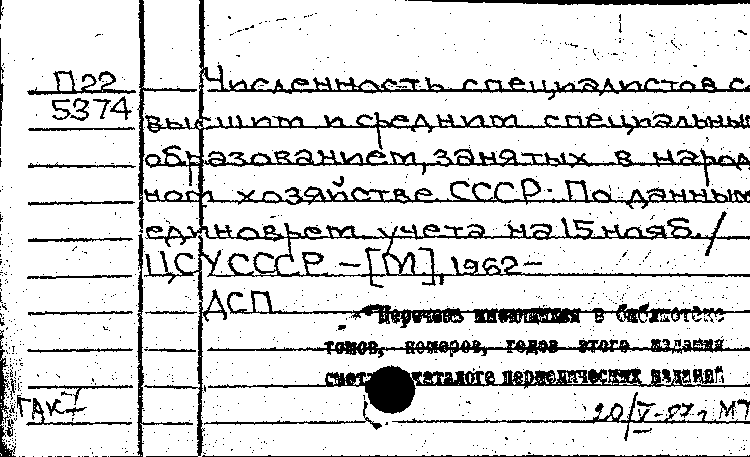 П22 Численность специалистов с
5374 высшим и средним специальным
образованием, занятых в народ
ном хозяйстве СССР: По данным
единоврем. учета на 15 нояб. /
ЦСУ СССР. – [М], 1962–
ДСП
Перечень имеющихся в библиотеке
томов, номеров, годов этого издания
каталоге периодических изданий
20/V-87г